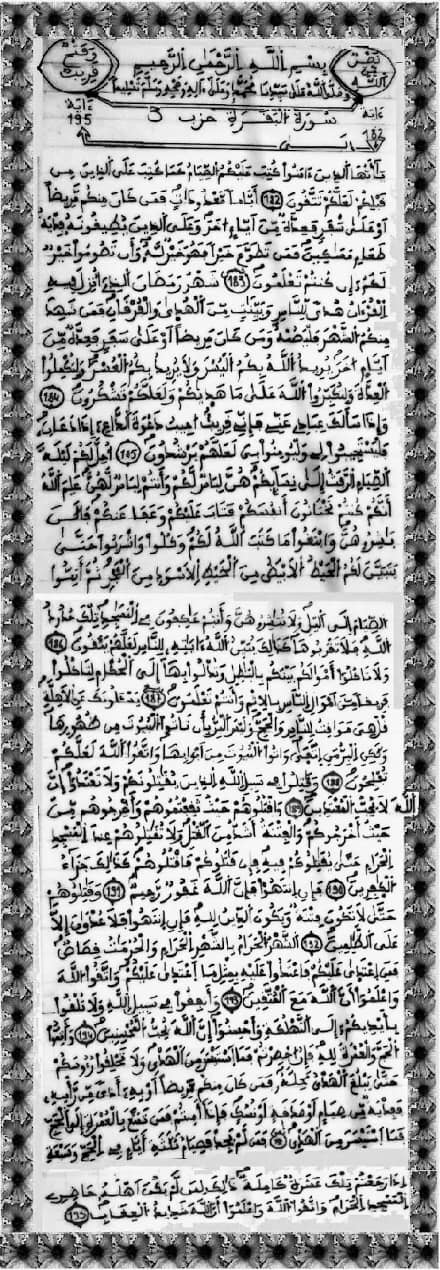 بسم الله الرحمن الرحيم
وصلى الله على سيدنا محمد وعلى آله وصحبه وسلم تسليما
ءاية ءاية
195 سورة البقرة حزب 3
يأيها الذين ءامنوا كتب عليكم الصيام كما كتب على الذين من
قبلكم لعلكم تتقون 182 أياما معدودات فمن كان منكم مريضا
أو على سفر فعدة من أيام أخر وعلى الذين يطيقونه فدية
طعام مسكين فمن تطوع خيرا فهو خير له وأن تصوموا خير
لكم إن كنتم تعلمون 183 شهر رمضان الذي أنزل فيه
القرءان هدى للناس وبينت من الهدى والفرقان فمن شهد
منكم الشهر فليصمه ومن كان مريضا أو على سفر فعدة من
أيام أخر يريد الله بكم اليسر ولا يريد بكم العسر ولتكملوا
العدة ولتكبروا الله على ما هديكم ولعلكم تشكرون 184
وإذا سألك عبادي عني فإني قريب أجيب دعوة الداع إذا دعان
فليستجيبوا لي وليومنوا بي لعلهم يرشدون 185 أحل لكم ليلة
الصيام الرفث إلى نسائكم هن لباس لكم وأنتم لباس لهن علم الله
أنكم كنتم تختانون أنفسكم فتاب عليكم وعفا عنكم فالن
بشروهن وابتغوا ما كتب الله لكم وكلوا واشربوا حتى
يتبين لكم الخيط الأبيض من الخيط الأسود من الفجر ثم أتموا
الصيام إلى اليل ولا تبشروهن وأنتم عكفون في المسجد تلك حدود
الله فلا تقربوها كذلك يبين الله ءايته للناس لعلهم يتقون 186
ولا تاكلوا أمولكم بينكم بالبطل وتدلوا بها إلى الحكام لتاكلوا
فريقا من أمول الناس بالإثم وأنتم تعلمون 187 يسئلونك عن الأهلة
قل هي موقيت للناس والحج وليس البر بأن تاتوا البيوت من ظهورها
ولكن البر من اتقى واتوا البيوت من أبوبها واتقوا الله لعلكم
تفلحون 188 وقتلوا في سبيل الله الذين يقتلونكم ولا تعتدوا إن
الله لا يحب المعتدين 189 واقتلوهم حيث ثقفتموهم وأخرجوهم من
حيث أخرجوكم والفتنة أشد من القتل ولا تقتلوهم عند المسجد
الحرام حتى يقتلوكم فيه فإن قتلوكم فاقتلوهم كذلك جزاء
الكفرين 190 فإن انتهوا فإن الله غفور رحيم 191 وقتلوهم
حتى لا تكون فتنة ويكون الدين لله فإن انتهوا فلا عدون إلا
على الظلمين 192 الشهر الحرام بالشهر الحرام والحرمت قصاص
فمن اعتدى عليكم فاعتدوا عليه بمثل ما اعتدى عليكم واتقوا الله
واعلموا أن الله مع المتقين 193 وأنفقوا في سبيل الله ولا تلقوا
بأيديكم إلى التهلكة وأحسنوا إن الله يحب المحسنين 194 وأتموا
الحج والعمرة لله فإن أحصرتم فما استيسر من الهدي ولا تحلقوا رءوسكم
حتى يبلغ الهدي محله فمن كان منكم مريضا أو به أذى من رأسه
ففدية من صيام أو صدقة أو نسك فإذا أمنتم فمن تمتع بالعمرة إلى الحج
فما استيسر من الهدي فمن لم يجد فصيام ثلثة أيام في الحج وسبعة
إذا رجعتم تلك عشرة كاملة ذلك لمن لم يكن أهله حاضري
المسجد الحرام واتقوا الله واعلموا أن الله شديد العقاب 195